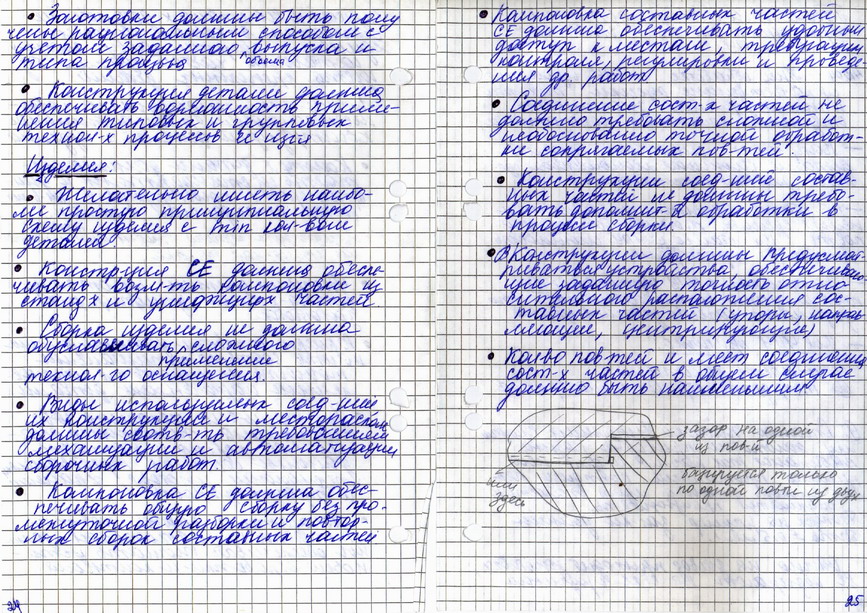 • Заготовки должны быть полу
чены рациональным способом с
учётом заданного объёма выпуска и
типа произв-ва
• Конструкция детали должна
обеспечивать возможность приме-
нения типовых и групповых
технол-х процессов её изг-я
Изделия:
• Желательно иметь наибо-
лее простую принципиальную
схему изделия с min кол-вом
деталей
• Конструкция СЕ должна обеспе-
чивать возм-ть компоновки из
станд-х и унифицир-х частей
• Сборка изделия не должна
обуславливать применение сложного
технол-го оснащения.
• Виды используемых соед-ний
их конструкции и месторасполож
должны соотв-ть требованиям
механизации и автоматизации
сборочных работ
• Компоновка СЕ должна обес-
печивать общую сборку без про-
межуточной разборки и повтор-
ных сборок составных частей
24
• Компоновка составных частей
СЕ должна обеспечивать удобный
доступ к местам, требующим
контроля, регулировки и проведе-
ния др. работ
• Соединение сост-х частей не
должно требовать сложной и
необоснованно точной обработ-
ки сопрягаемых пов-тей.
• Конструкции соед-ний состав-
ных частей не должны требо-
вать дополнит-й обработки в
процессе сборки.
• Конструкции должны предусмат-
ривать устройства, обеспечиваю-
щие заданную точность отно-
сительного расположения сос-
тавных частей (упоры, направ
ляющие, центрирующие)
• Кол-во пов-тей и мест соединения
сост-х частей в общем случае
должно быть наименьшим
зазор на одной
из пов-й
или
здесь
базируется только
по одной пов-ти из двух
25